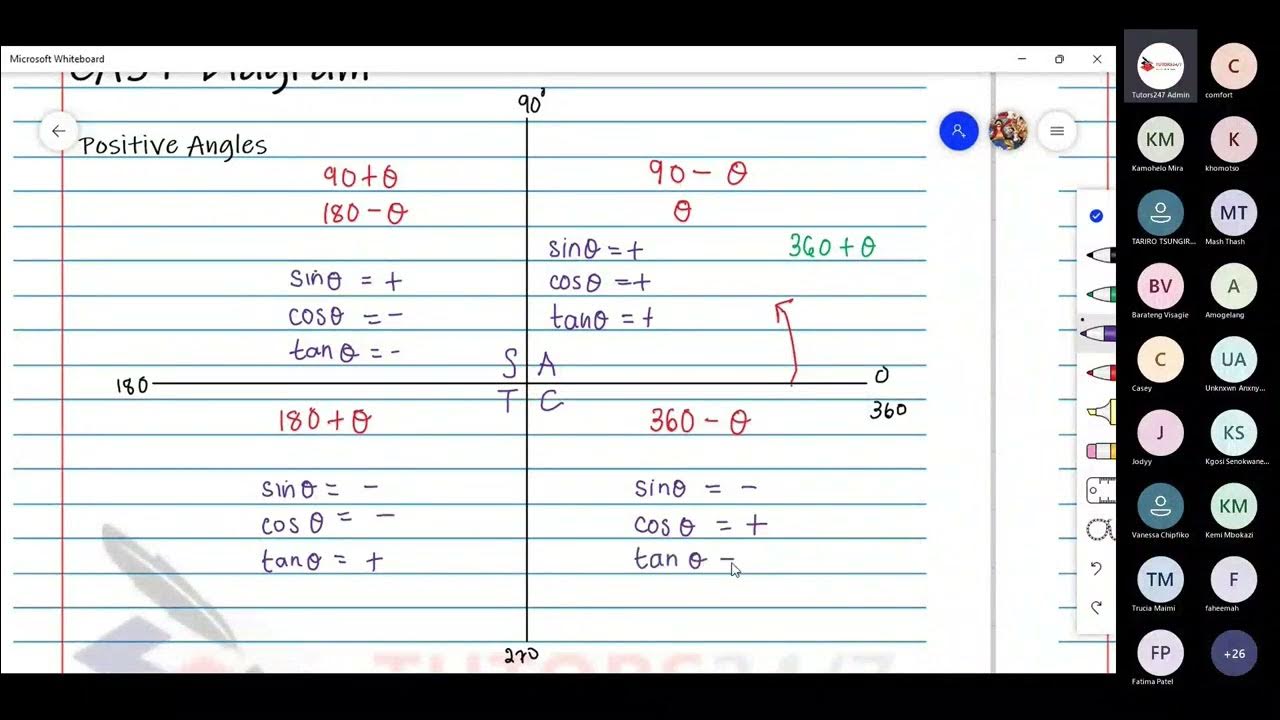 Microsoft Whiteboard
CAST Diagram
Positive Angles
90°
90+θ
180-θ
90-θ
θ
360+θ
sinθ = +
cosθ = -
tanθ = -
sinθ = +
cosθ = +
tanθ = +
S A
T C
180
0
360
180+θ
360-θ
sinθ = -
cosθ = -
tanθ = +
sinθ = -
cosθ = +
tanθ -
270
TUTORS24/7
Tutors247 Admin
C
comfort
KM
Kamohelo Mira
K
khomotso
TARIRO TSUNGIR...
MT
Mash Thash
BV
Barateng Visagie
A
Amogelang
C
Casey
UA
Unknxwn Anxny...
J
Jodyy
KS
Kgosi Senokwane...
Vanessa Chipfiko
KM
Kemi Mbokazi
TM
Trucia Maimi
F
faheemah
FP
Fatima Patel
+26